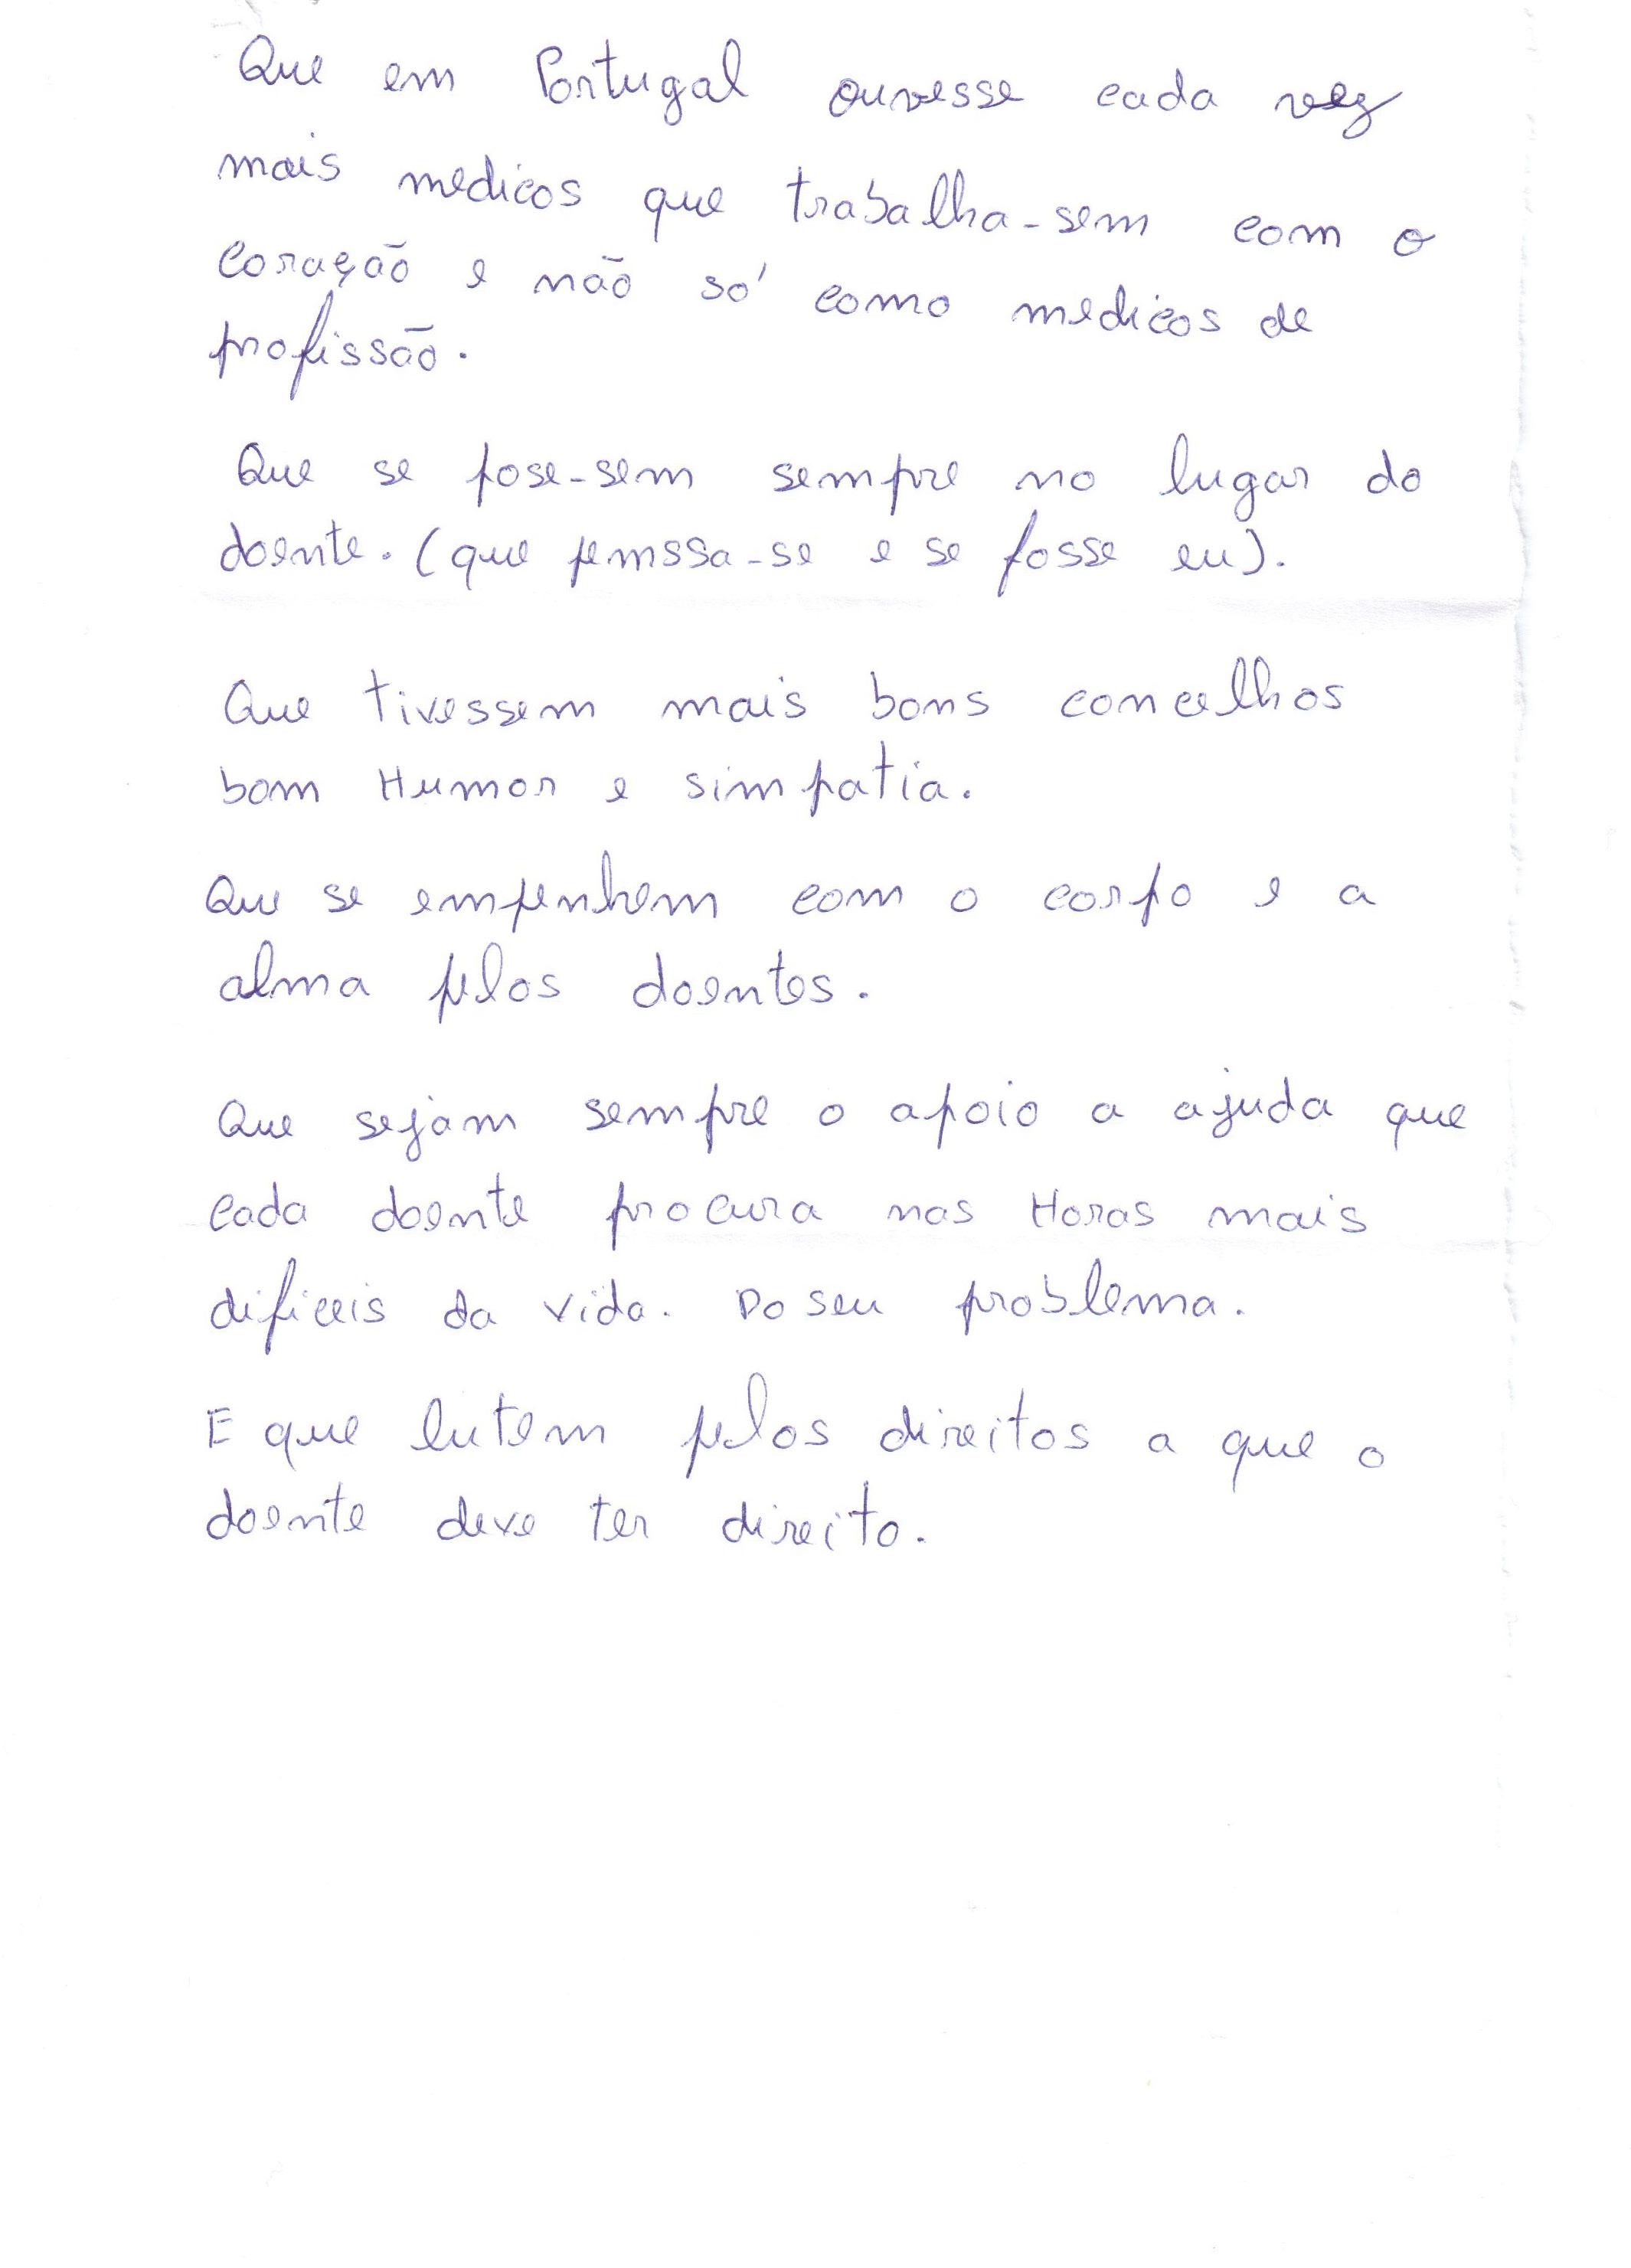 Que em Portugal ouvesse cada vez
mais medicos que trabalha-sem com o
coração e não só como medicos de
profissão.
Que se pose-sem sempre no lugar do
doente. (que pemssa-se e se fosse eu).
Que tivessem mais bons concelhos
bom Humor e simpatia.
Que se empenhem com o corpo e a
alma pelos doentes.
Que sejam sempre o apoio a ajuda que
cada doente procura nas Horas mais
dificeis da vida. Do seu problema.
E que lutem pelos direitos a que o
doente deve ter direito.